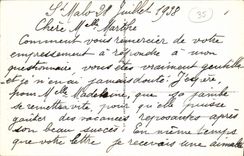 St Malo 21 Juillet 1938
35
Chère Melle Marthe
Comment vous remercier de votre
empressement à répondre à mon
questionnaire vous êtes vraiment gentille
et je n'en ai jamais douté. J'espère,
pour Melle Madeleine, que ça
se remettra vite, pour qu'elle puisse
goûter des vacances reposantes après
son beau succès! En même temps
que votre lettre je recevais une aimable